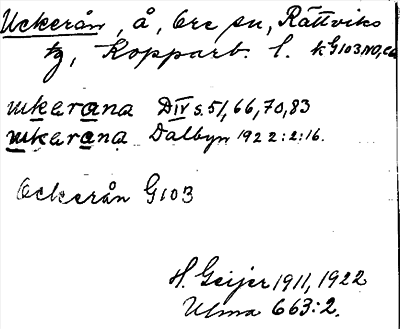 Uckerån, å, Ore sn, Rättviks
tg, Kopparb. l. kG103,NO,ca
ɯkarana DIV s. 51, 66, 70, 83
ɯkarana Dalbyn 1922:2:16.
Ockerån G103
H. Geijer 1911, 1922
Ulma 663:2.